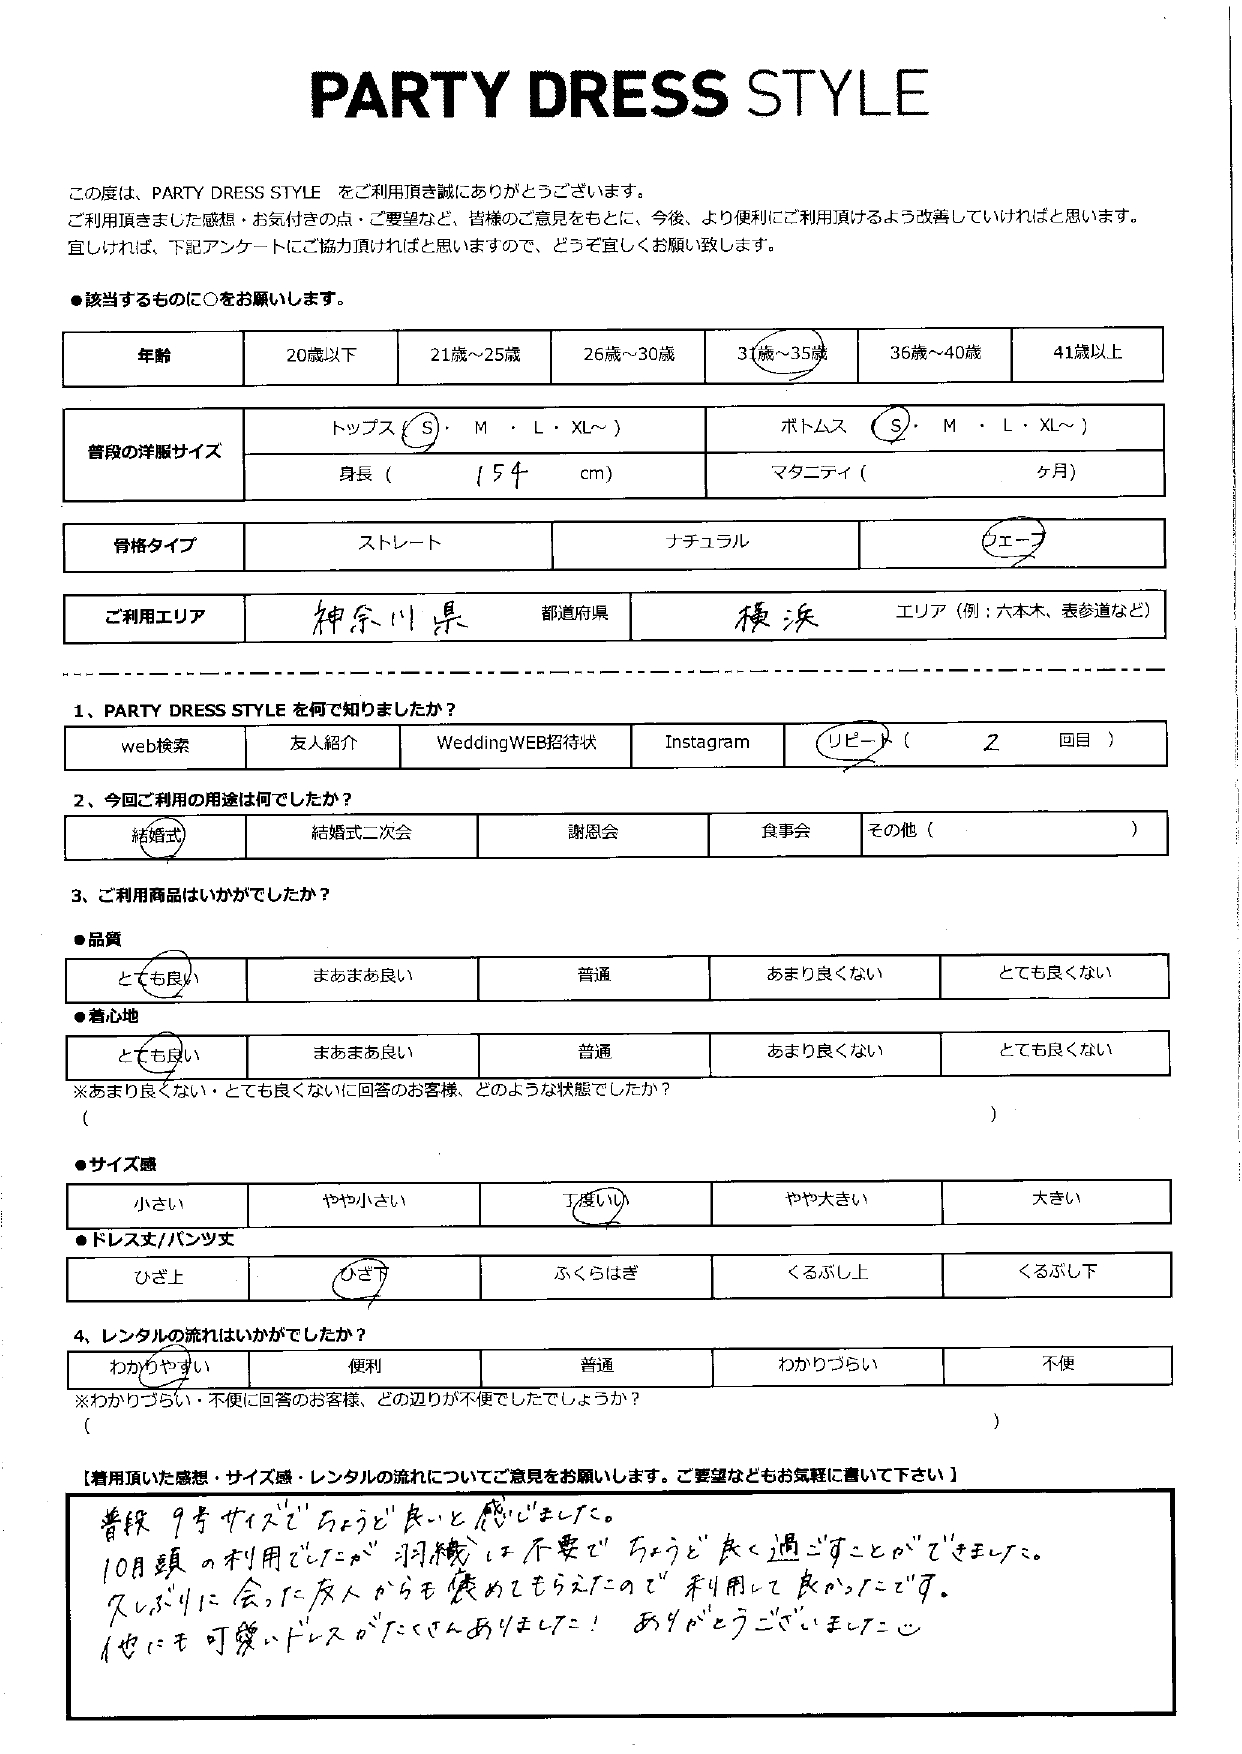 PARTY DRESS STYLE
この度は、PARTY DRESS STYLE　をご利用頂き誠にありがとうございます。
ご利用頂きました感想・お気付きの点・ご要望など、皆様のご意見をもとに、今後、より便利にご利用頂けるよう改善していければと思います。
宜しければ、下記アンケートにご協力頂ければと思いますので、どうぞ宜しくお願い致します。
●該当するものに○をお願いします。
年齢 20歳以下 21歳～25歳 26歳～30歳 31歳～35歳 36歳～40歳 41歳以上
普段の洋服サイズ トップス（ S ・ M ・ L ・ XL～ ） ボトムス（ S ・ M ・ L ・ XL～ ）
身長（ 154 cm） マタニティ（ ヶ月）
骨格タイプ ストレート ナチュラル ウェーブ
ご利用エリア 神奈川県 都道府県 横浜 エリア（例：六本木、表参道など）
1、PARTY DRESS STYLE を何で知りましたか？
web検索 友人紹介 WeddingWEB招待状 Instagram リピート（ 2 回目 ）
2、今回ご利用の用途は何でしたか？
結婚式 結婚式二次会 謝恩会 食事会 その他（ ）
3、ご利用商品はいかがでしたか？
●品質
とても良い まあまあ良い 普通 あまり良くない とても良くない
●着心地
とても良い まあまあ良い 普通 あまり良くない とても良くない
※あまり良くない・とても良くないに回答のお客様、どのような状態でしたか？
（ ）
●サイズ感
小さい やや小さい 丁度いい やや大きい 大きい
●ドレス丈/パンツ丈
ひざ上 ひざ下 ふくらはぎ くるぶし上 くるぶし下
4、レンタルの流れはいかがでしたか？
わかりやすい 便利 普通 わかりづらい 不便
※わかりづらい・不便に回答のお客様、どの辺りが不便でしたでしょうか？
（ ）
【着用頂いた感想・サイズ感・レンタルの流れについてご意見をお願いします。ご要望などもお気軽に書いて下さい 】
普段 9号サイズでちょうど良いと感じました。
10月頭の利用でしたが 羽織は不要で ちょうど良く過ごすことができました。
久しぶりに会った友人からも褒めてもらえたので 利用して良かったです。
他にも可愛いドレスがたくさんありました！ ありがとうございました